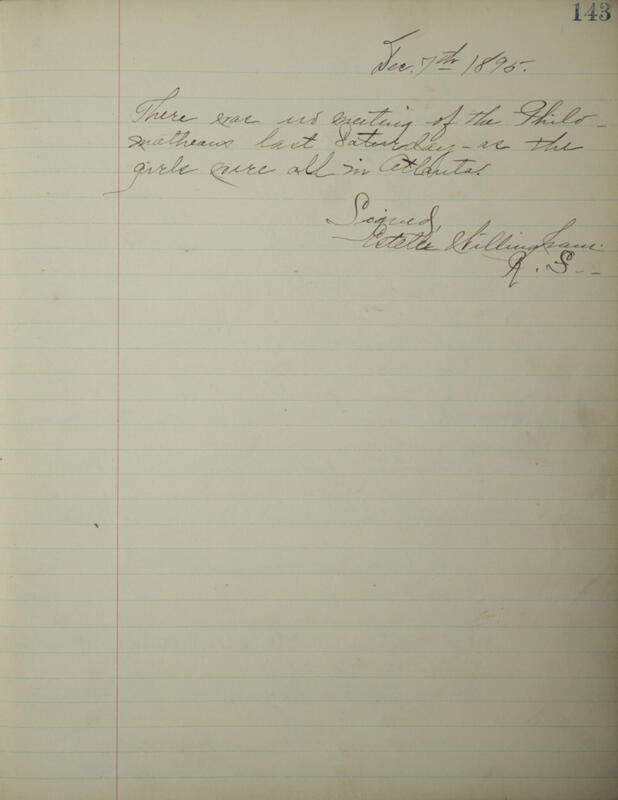 143
Dec. 7th 1895.
There was no meeting of the Philo-
matheans last Saturday - as the
girls were all in Atlanta.
Signed,
Estelle Willingham.
R. S.